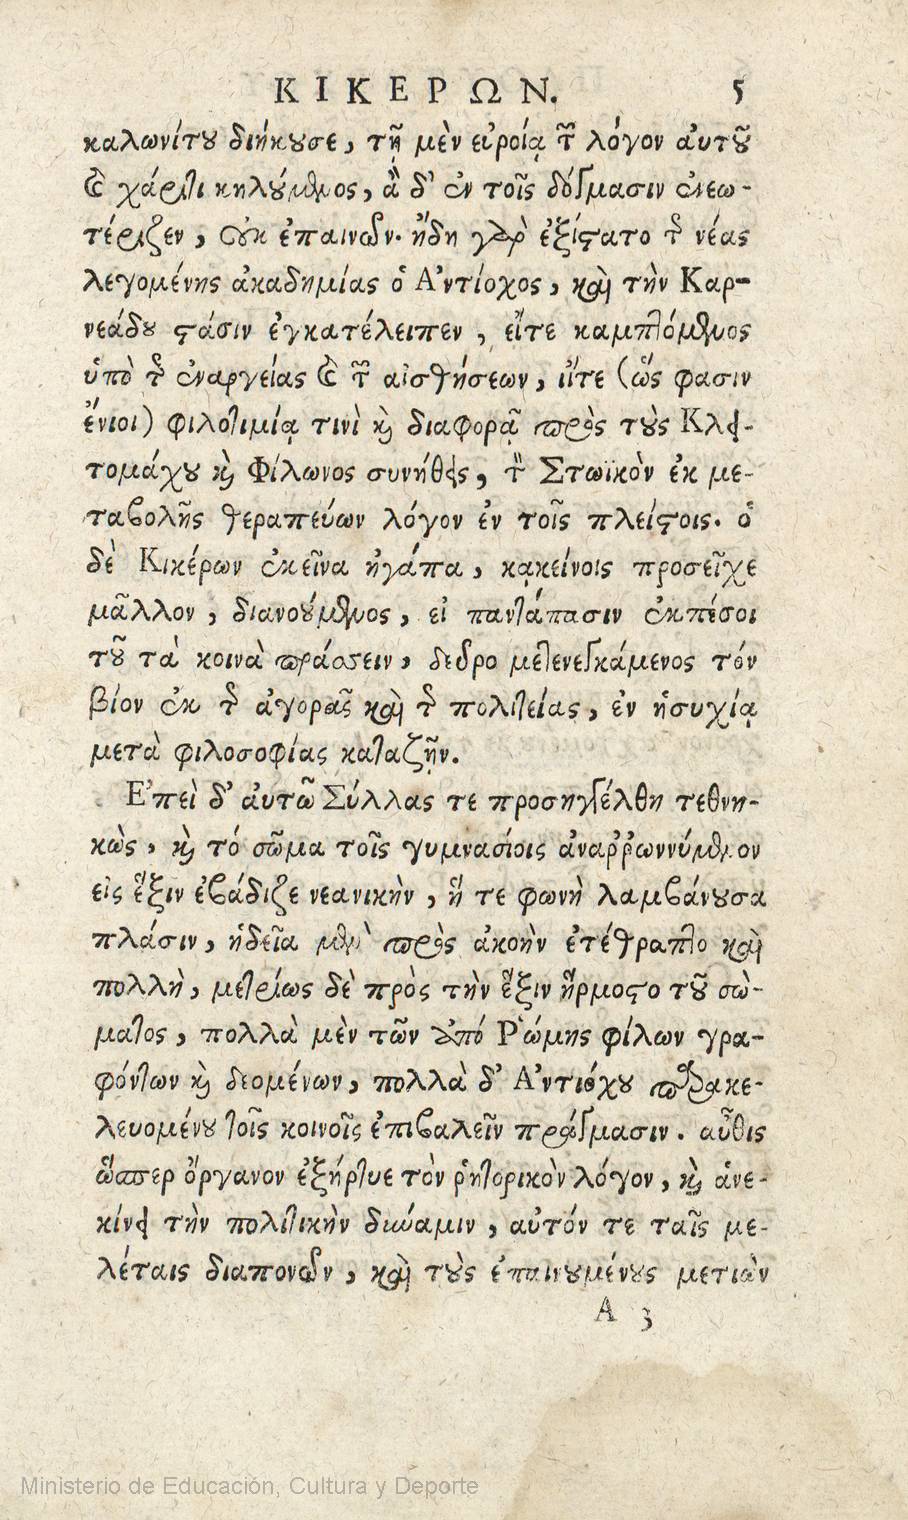 ΚΙΚΕΡΩΝ. 5
καλωνίτȣ διήκȣσε, τῇ μὲν εὐροίᾳ τῶν λόγον ἀυτȣ͂
καὶ χάριτι κηλούμενος, ἃ δ' ἐν τοῖς δόγμασιν ἐνεω-
τέριζεν, οὐκ ἐπαινῶν· ἤδη γὰρ ἐξίςατο τῆς νέας
λεγομένης ἀκαδημίας ὁ Ἀντίοχος, καὶ τὴν Καρ-
νεάδȣ ςάσιν ἐγκατέλειπεν, εἴτε καμπτόμενος
ὑπὸ τῆς ἐναργείας καὶ τῶν αἰσθήσεων, εἴτε (ὥς φασιν
ἔνιοι) φιλοτιμίᾳ τινὶ καὶ διαφορᾷ πρὸς τȣ̀ς Κλει-
τομάχȣ καὶ Φίλωνος συνήθεις, τὸν Στωϊκὸν ἐκ με-
ταβολῆς θεραπεύων λόγον ἐν τοῖς πλείςοις. ὁ
δὲ Κικέρων ἐκεῖνα ἠγάπα, κᾳκείνοις προσεῖχε
μᾶλλον, διανούμενος, εἰ παντάπασιν ἐκπέσοι
τȣ͂ τὰ κοινὰ πράσσειν, δεῦρο μετενεγκάμενος τόν
βίον ἐκ τῆς ἀγορᾶς καὶ τῆς πολιτείας, ἐν ἡσυχίᾳ
μετὰ φιλοσοφίας καταζῇν.
Ἐπεὶ δ' ἀυτῶ Σύλλας τε προσηγγέλθη τεθνη-
κὼς, καὶ τό σῶμα τοῖς γυμνασίοις ἀναῤῥωννύμενον
εἰς ἕξιν ἐβάδιζε νεανικὴν, ἥ τε φωνὴ λαμβάνȣσα
πλάσιν, ἡδεῖα μὲν πρὸς ἀκοὴν ἐτέθραπτο καὶ
πολλὴ, μετρίως δὲ πρὸς τὴν ἕξιν ἥρμοςο τȣ͂ σώ-
ματος, πολλὰ μὲν τῶν ἀπό Ῥώμης φίλων γρα-
φόντων καὶ δεομένων, πολλὰ δ' Ἀντιόχȣ παρακε-
λευομένȣ τοῖς κοινοῖς ἐπιβαλεῖν πράγμασιν. αὖθις
ὥσπερ ὄργανον ἐξήρτυε τὸν ῥητορικὸν λόγον, καὶ ἀνε-
κίνει τὴν πολιτικὴν δύναμιν, αὑτόν τε ταῖς με-
λέταις διαπονῶν, καὶ τȣ̀ς ἐπαινȣμένȣς μετιὼν
A 3
Ministerio de Educación, Cultura y Deporte